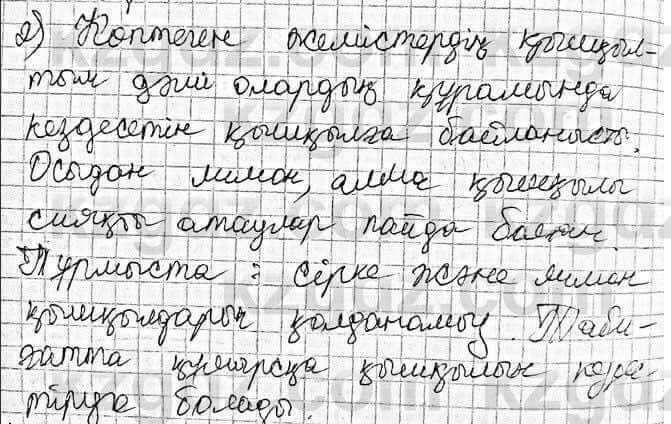 2) Көптеген жемістердің қышқыл-
тым дәмі олардың құрамында
кездесетін қышқылға байланысты.
Осыдан лимон, алма қышқылы
сияқты атаулар пайда болған.
Тұрмыста : сірке және лимон
қышқылдарын қолданамыз. Таби-
ғатта құмырсқа қышқылын кезде-
тіруге болады.